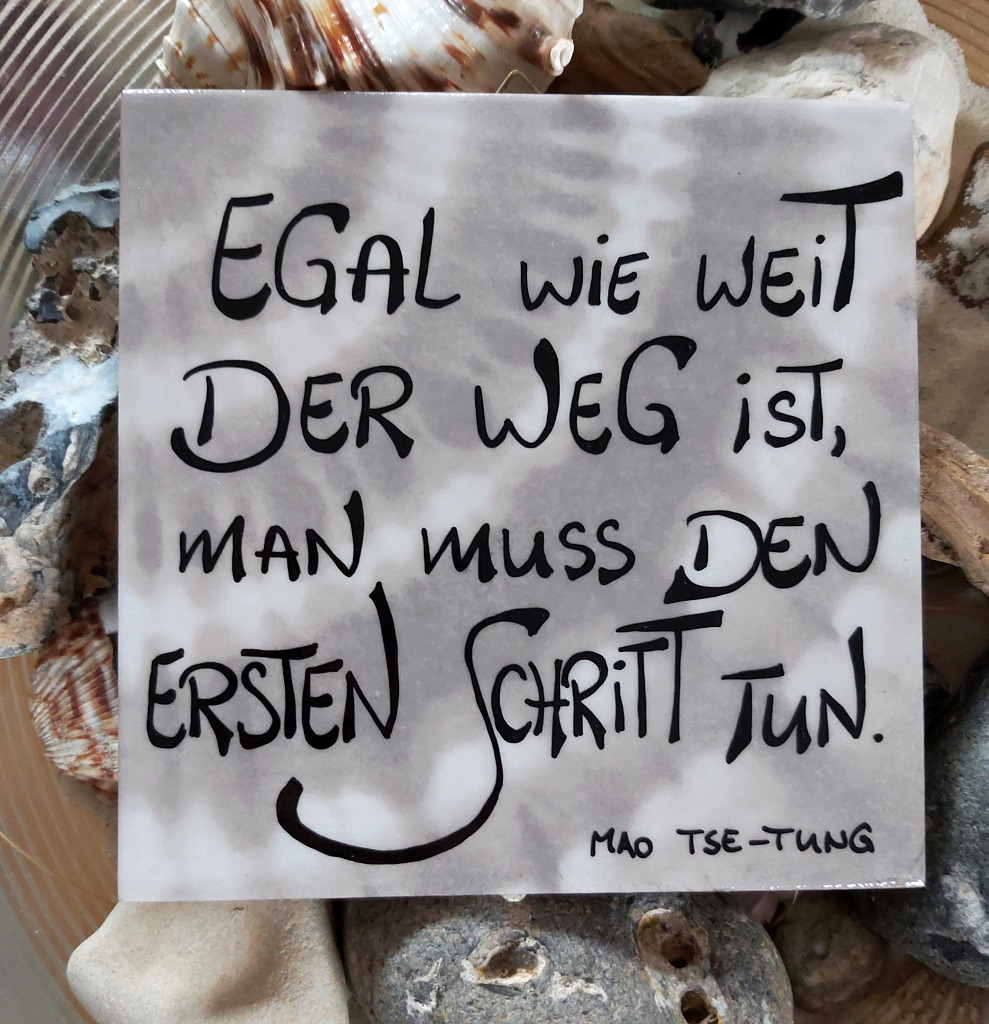 EGAL WIE WEIT
DER WEG IST,
MAN MUSS DEN
ERSTEN SCHRITT TUN.
MAO TSE-TUNG